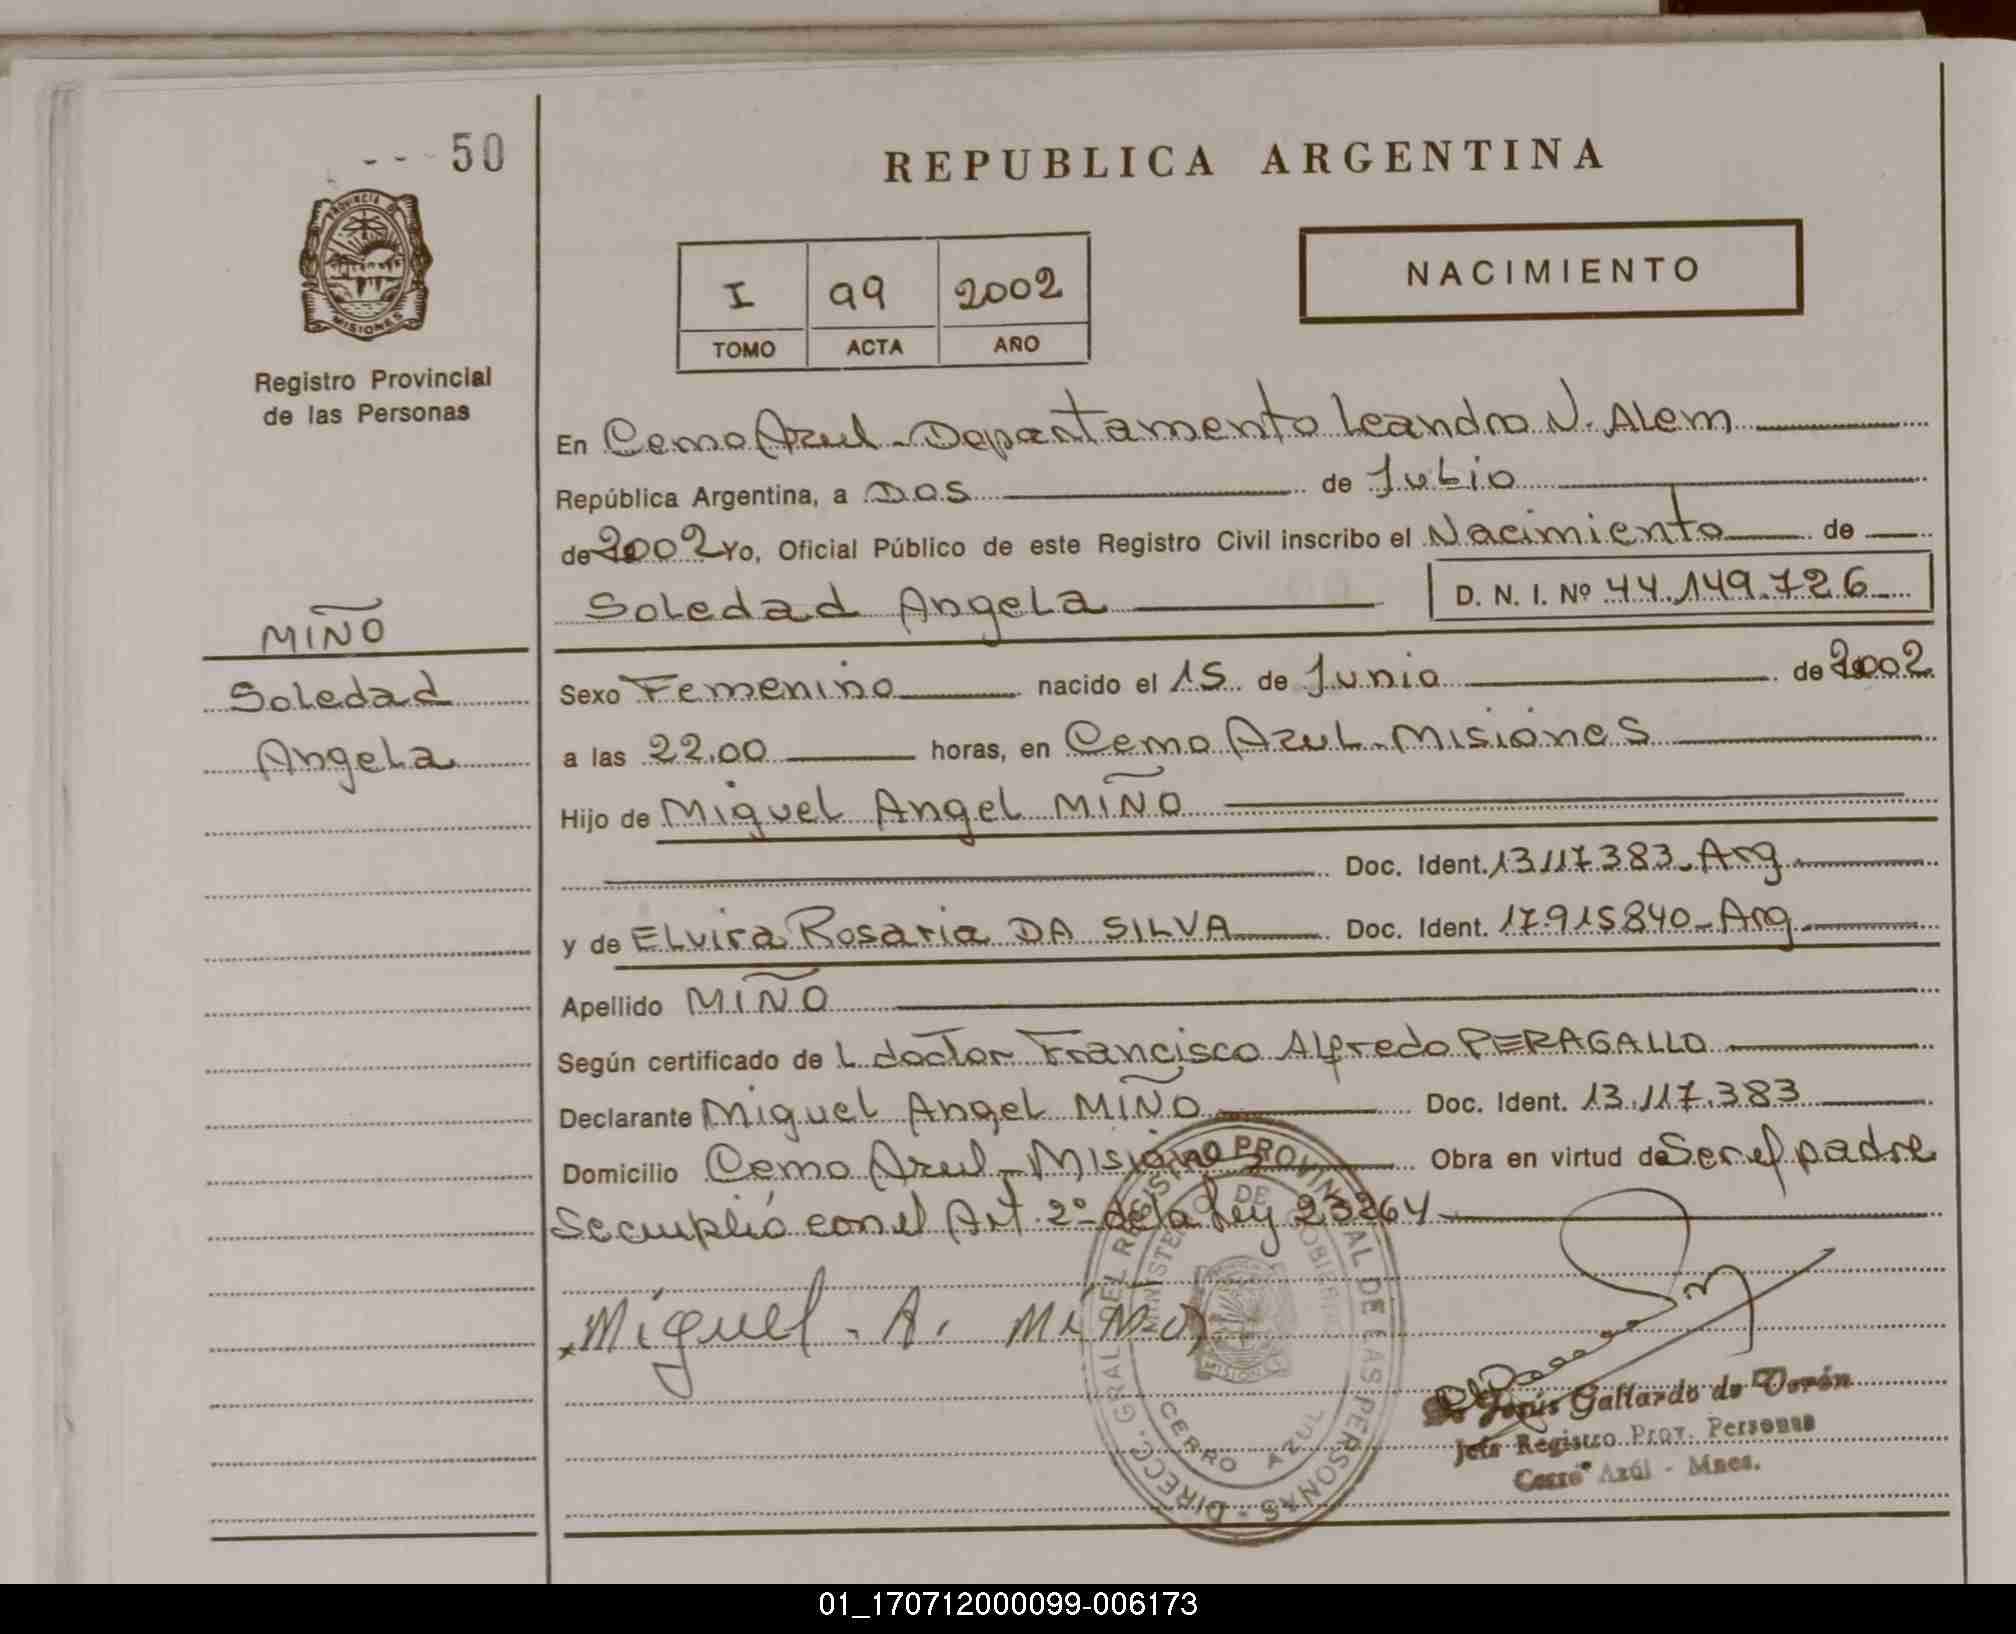 50
REPUBLICA ARGENTINA
PROVINCIA DE
MISIONES
I 99 2002
TOMO ACTA AÑO
NACIMIENTO
Registro Provincial
de las Personas
En Cerro Azul - Departamento Leandro N. Alem
República Argentina, a Dos de Julio
de 2002 Yo, Oficial Público de este Registro Civil inscribo el Nacimiento de
Soledad Angela D. N. I. Nº 44.149.726
MIÑO
Soledad
Angela
Sexo Femenino nacido el 15 de Junio de 2002
a las 22.00 horas, en Cerro Azul - Misiones
Hijo de Miguel Angel MIÑO
Doc. Ident. 13117383 - Arg
y de Elvira Rosaria DA SILVA Doc. Ident. 17.915840 - Arg
Apellido MIÑO
Según certificado de L doctor Francisco Alfredo PERAGALLO
Declarante Miguel Angel MIÑO Doc. Ident. 13.117.383
Domicilio Cerro Azul - Misiones Obra en virtud de Ser el padre
Se cumplió con el Art. 2º de la Ley 23264
Miguel - A. Miño
DIRECC. GRAL DEL REGISTRO PROVINCIAL DE LAS PERSONAS
MINISTERIO DE GOBIERNO
MISIONES
CERRO AZUL
Jesús Gallardo de Verón
Jefe Registro Prov. Personas
Cerro Azúl - Mnes.
01_170712000099-006173